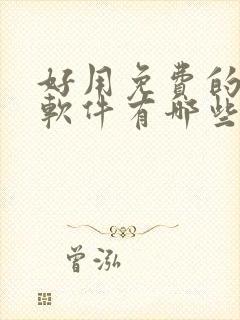 好用免費的
軟件有哪些
曾泓